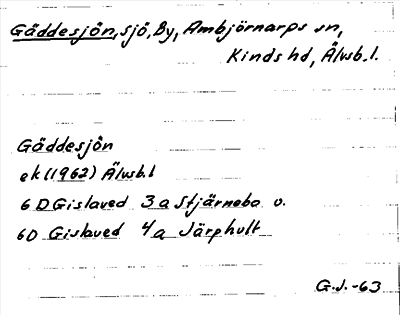 Gäddesjön, sjö, By, Ambjörnarps sn,
Kinds hd, Älvsb. l.
Gäddesjön
ek (1962) Älvsb. l
6D Gislaved 3a Stjärnebo v.
6D Gislaved 4a Järphult
G.J. -63